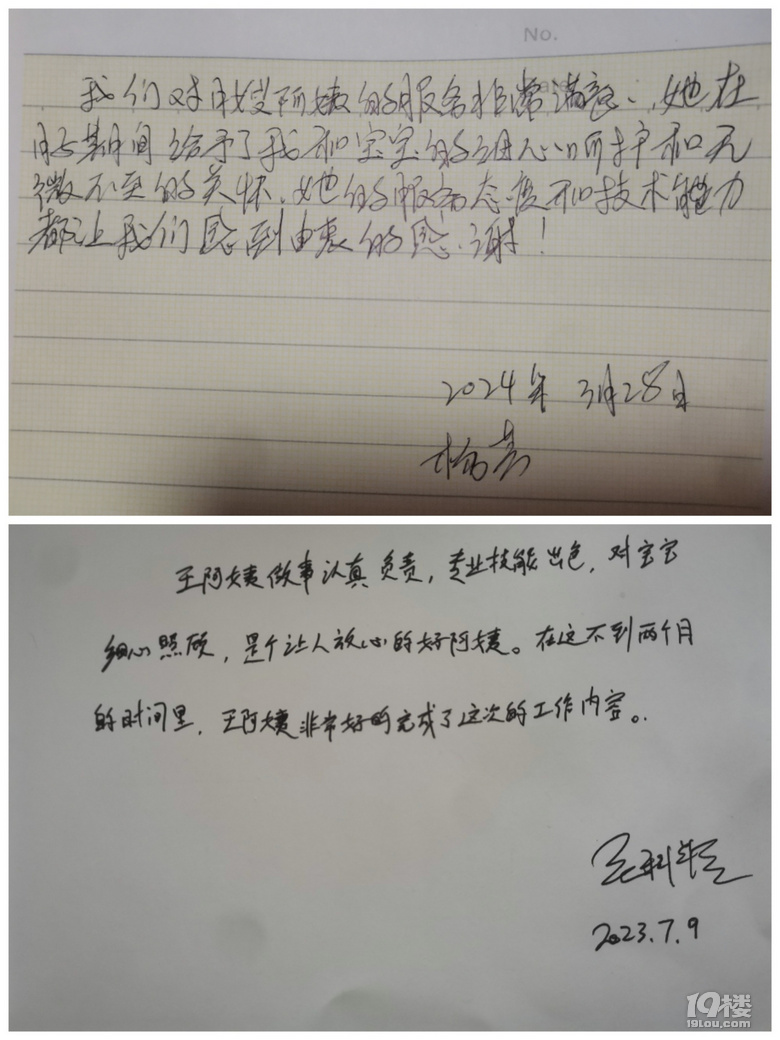 No.
我们对月嫂阿姨的服务非常满意、她在
月子期间给予了我和宝宝的细心呵护和无
微不至的关怀、她的服务态度和技术能力
都让我们感到由衷的感谢！
2024年 3月28日
杨
王阿姨做事认真负责，专业技能出色，对宝宝
细心照顾，是个让人放心的好阿姨。在这不到两个月
的时间里，王阿姨非常好的完成了这次的工作内容。
2023.7.9
19楼
19lou.com